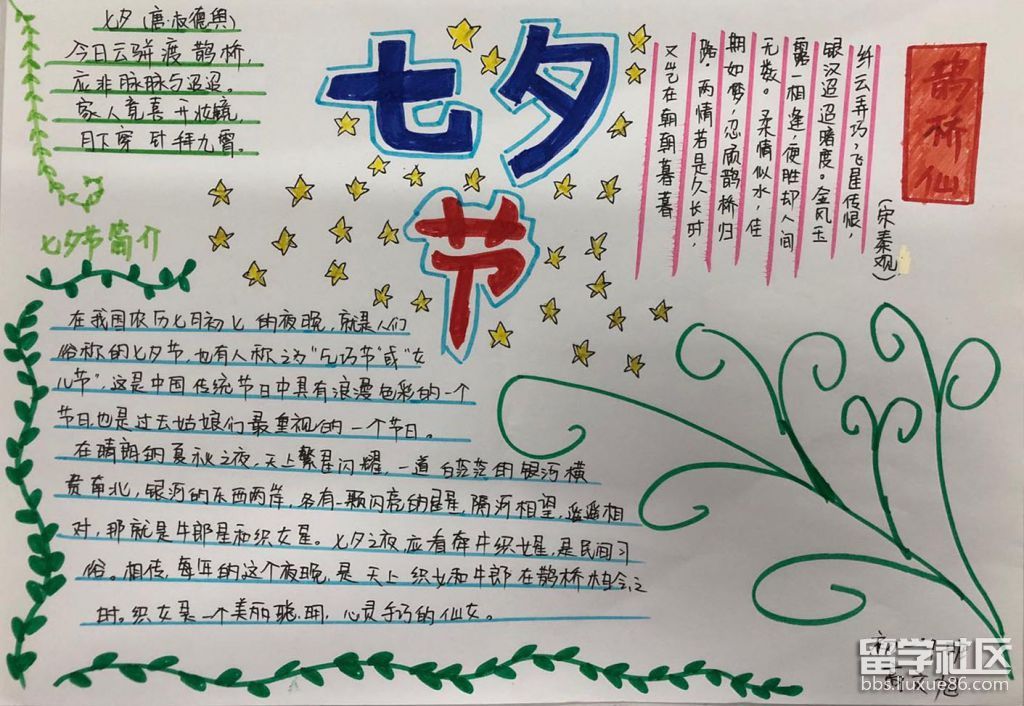 七夕(唐 权德舆)
今日云骈渡鹊桥,
应非脉脉与迢迢。
家人竟喜开妆镜,
月下穿针拜九霄。
七夕节
鹊桥仙
(宋秦观)
纤云弄巧,飞星传恨,
银汉迢迢暗度。金风玉
露一相逢,便胜却人间
无数。柔情似水,佳
期如梦,忍顾鹊桥归
路。两情若是久长时,
又岂在朝朝暮暮
七夕节简介
在我国农历七月初七的夜晚,就是人们
俗称的七夕节,也有人称之为"乞巧节"或"女
儿节",这是中国传统节日中具有浪漫色彩的一个
节日也是过去姑娘们最重视的一个节日。
在晴朗的夏秋之夜,天上繁星闪耀,一道白茫茫的银河横
贯南北,银河的东西两岸,各有一颗闪亮的星星,隔河相望,遥遥相
对,那就是牛郎星和织女星。七夕之夜,应看牵牛织女星,是民间习
俗。相传,每年的这个夜晚,是天上织女和牛郎在鹊桥相会之
时。织女是一个美丽聪明,心灵手巧的仙女。
留学社区
bbs.liuxue86.com